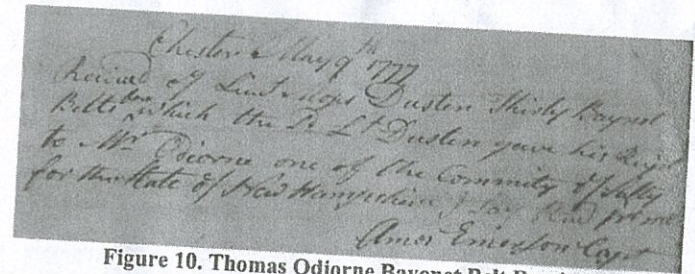 Chester May 9th 1777
Received of Lieut Moses Dusten Thirty Bayonet
Belts for which the Sd Lt Dusten gave his Rect
to Mr Odiorne one of the Commity of Safty
for the State of New Hampshire I say Recd pr me
Amos Emerson Capt
Figure 10. Thomas Odiorne Bayonet Belt